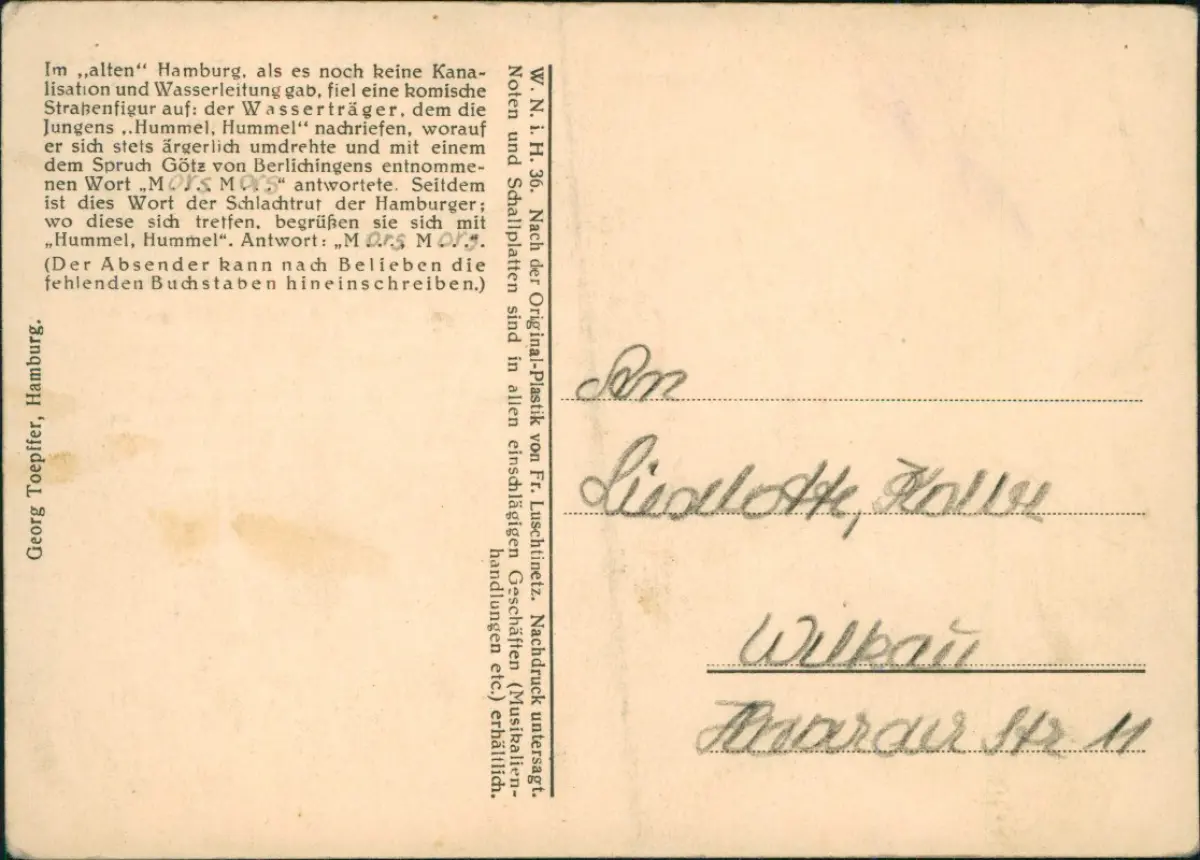 Im „alten“ Hamburg, als es noch keine Kana-
lisation und Wasserleitung gab, fiel eine komische
Straßenfigur auf: der Wasserträger, dem die
Jungens „Hummel, Hummel“ nachriefen, worauf
er sich stets ärgerlich umdrehte und mit einem
dem Spruch Götz von Berlichingens entnomme-
nen Wort „Mors Mors“ antwortete. Seitdem
ist dies Wort der Schlachtruf der Hamburger;
wo diese sich treffen, begrüßen sie sich mit
„Hummel, Hummel“. Antwort: „Mors Mors“.
(Der Absender kann nach Belieben die
fehlenden Buchstaben hineinschreiben.)
Georg Toepffer, Hamburg.
W. N. i. H. 36. Nach der Original-Plastik von Fr. Luschtinetz. Nachdruck untersagt.
Noten und Schallplatten sind in allen einschlägigen Geschäften (Musikalien-
handlungen etc.) erhältlich.
An
Lieselotte,
Wilkau
Str 11